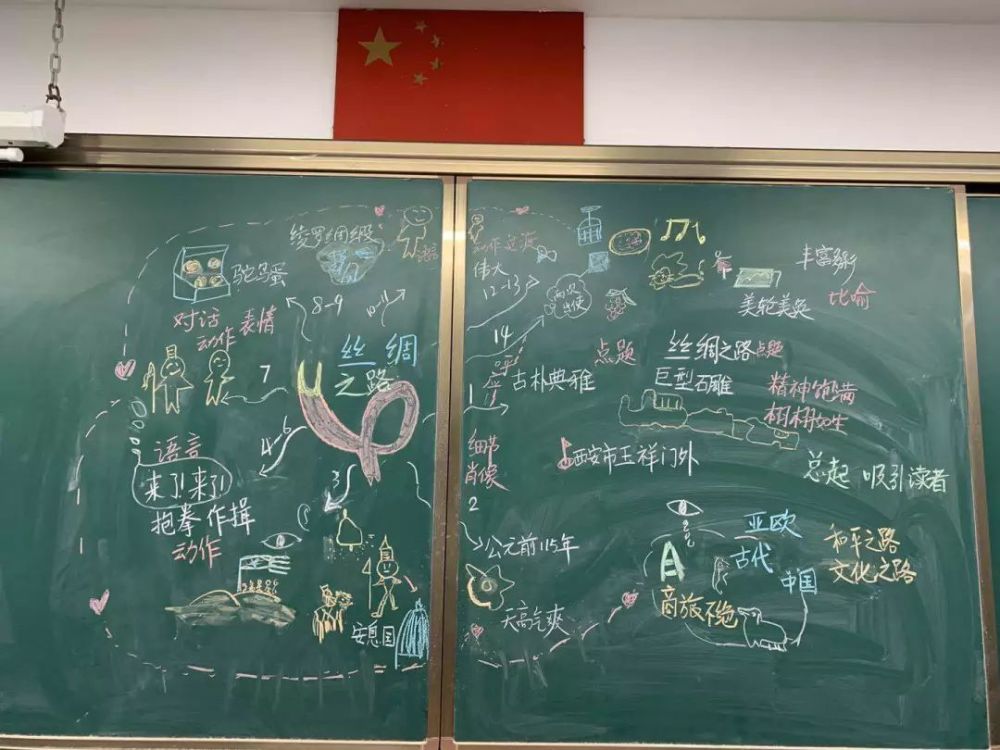 绫罗绸缎
鸵鸟蛋
8-9
10-11
对话
动作 表情
丝绸
之路
7
4-6
语言
来了!来了!
抱拳 作揖
动作
3
安息国
伟大
12-13
两次
出使
14
呼
应
丰富多彩
美轮美奂
比喻
点题
丝绸之路 点题
1
古朴典雅
巨型石雕
精神饱满
栩栩如生
细节
肖像
西安市玉祥门外
总起 吸引读者
2
公元前115年
天高气爽
亚欧
古代
中国
和平之路
文化之路
商旅不绝